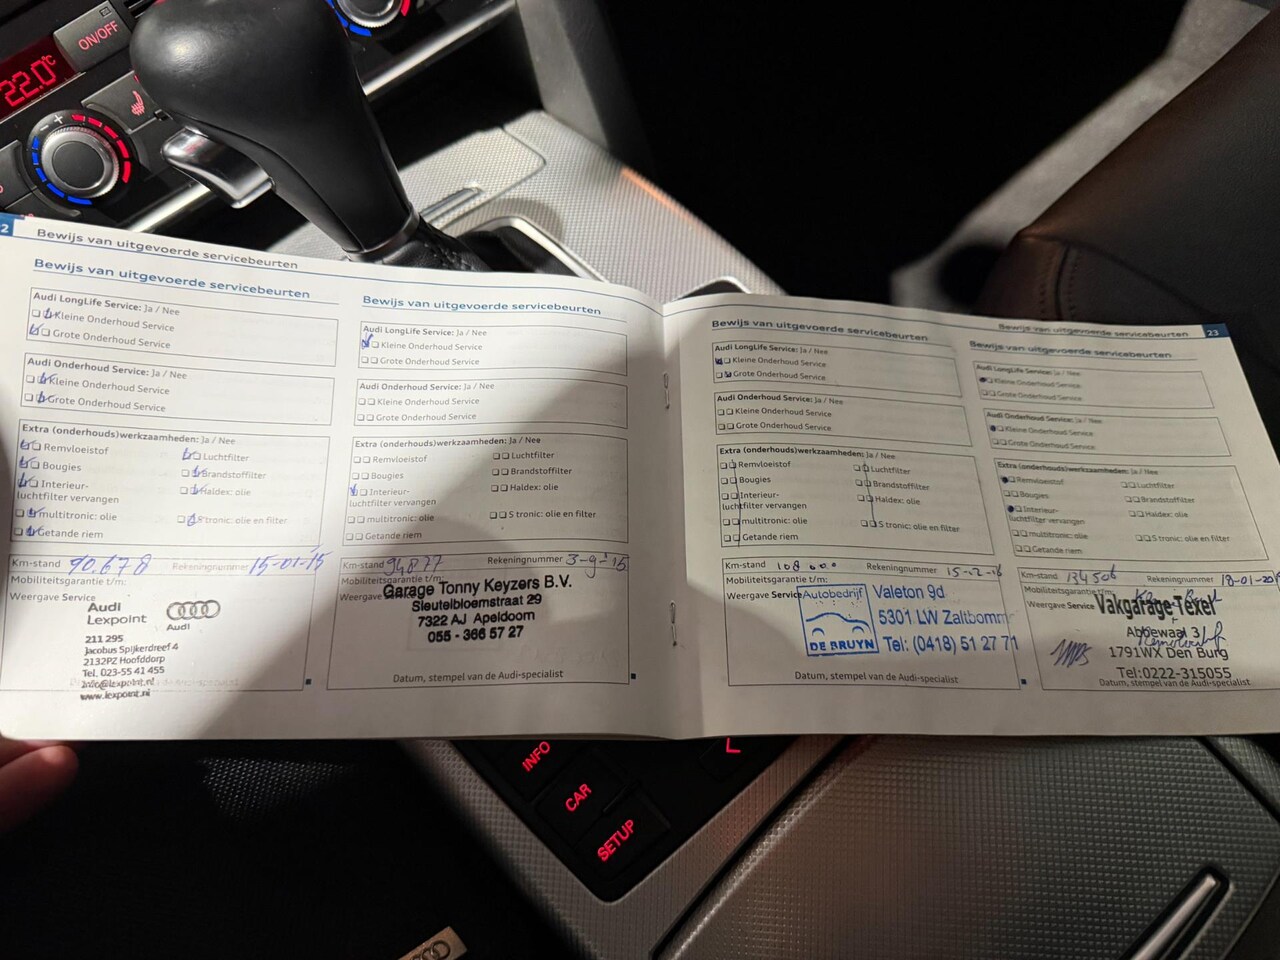 ON/OFF
22.0°C
22
Bewijs van uitgevoerde servicebeurten
Bewijs van uitgevoerde servicebeurten
Audi LongLife Service: Ja / Nee
Kleine Onderhoud Service
Grote Onderhoud Service
Audi Onderhoud Service: Ja / Nee
Kleine Onderhoud Service
Grote Onderhoud Service
Extra (onderhouds)werkzaamheden: Ja / Nee
Remvloeistof
Luchtfilter
Bougies
Brandstoffilter
Interieur-
luchtfilter vervangen
Haldex: olie
multitronic: olie
S tronic: olie en filter
Getande riem
Km-stand 90.678 Rekeningnummer 15-01-15
Mobiliteitsgarantie t/m:
Weergave Service
Audi
Lexpoint
Audi
211 295
Jacobus Spijkerdreef 4
2132PZ Hoofddorp
Tel. 023-55 41 455
info@lexpoint.nl
www.lexpoint.nl
Bewijs van uitgevoerde servicebeurten
Audi LongLife Service: Ja / Nee
Kleine Onderhoud Service
Grote Onderhoud Service
Audi Onderhoud Service: Ja / Nee
Kleine Onderhoud Service
Grote Onderhoud Service
Extra (onderhouds)werkzaamheden: Ja / Nee
Remvloeistof
Luchtfilter
Bougies
Brandstoffilter
Interieur-
luchtfilter vervangen
Haldex: olie
multitronic: olie
S tronic: olie en filter
Getande riem
Km-stand 94877 Rekeningnummer 3-9-'15
Mobiliteitsgarantie t/m:
Weergave Service
Garage Tonny Keyzers B.V.
Sleutelbloemstraat 29
7322 AJ Apeldoorn
055 - 366 57 27
Datum, stempel van de Audi-specialist
Bewijs van uitgevoerde servicebeurten
Audi LongLife Service: Ja / Nee
Kleine Onderhoud Service
Grote Onderhoud Service
Audi Onderhoud Service: Ja / Nee
Kleine Onderhoud Service
Grote Onderhoud Service
Extra (onderhouds)werkzaamheden: Ja / Nee
Remvloeistof
Luchtfilter
Bougies
Brandstoffilter
Interieur-
luchtfilter vervangen
Haldex: olie
multitronic: olie
S tronic: olie en filter
Getande riem
Km-stand 108 000 Rekeningnummer 15-12-16
Mobiliteitsgarantie t/m:
Weergave Service
Autobedrijf
DE BRUYN
Valeton 9d
5301 LW Zaltbomm
Tel: (0418) 51 27 71
Datum, stempel van de Audi-specialist
Bewijs van uitgevoerde servicebeurten
23
Bewijs van uitgevoerde servicebeurten
Audi LongLife Service: Ja / Nee
Kleine Onderhoud Service
Grote Onderhoud Service
Audi Onderhoud Service: Ja / Nee
Kleine Onderhoud Service
Grote Onderhoud Service
Extra (onderhouds)werkzaamheden: Ja / Nee
Remvloeistof
Luchtfilter
Bougies
Brandstoffilter
Interieur-
luchtfilter vervangen
Haldex: olie
multitronic: olie
S tronic: olie en filter
Getande riem
Km-stand 134506 Rekeningnummer 18-01-20
Mobiliteitsgarantie t/m:
Weergave Service
Vakgarage Texel
Abbewaal 3
1791WX Den Burg
Tel:0222-315055
Datum, stempel van de Audi-specialist
INFO
CAR
SETUP